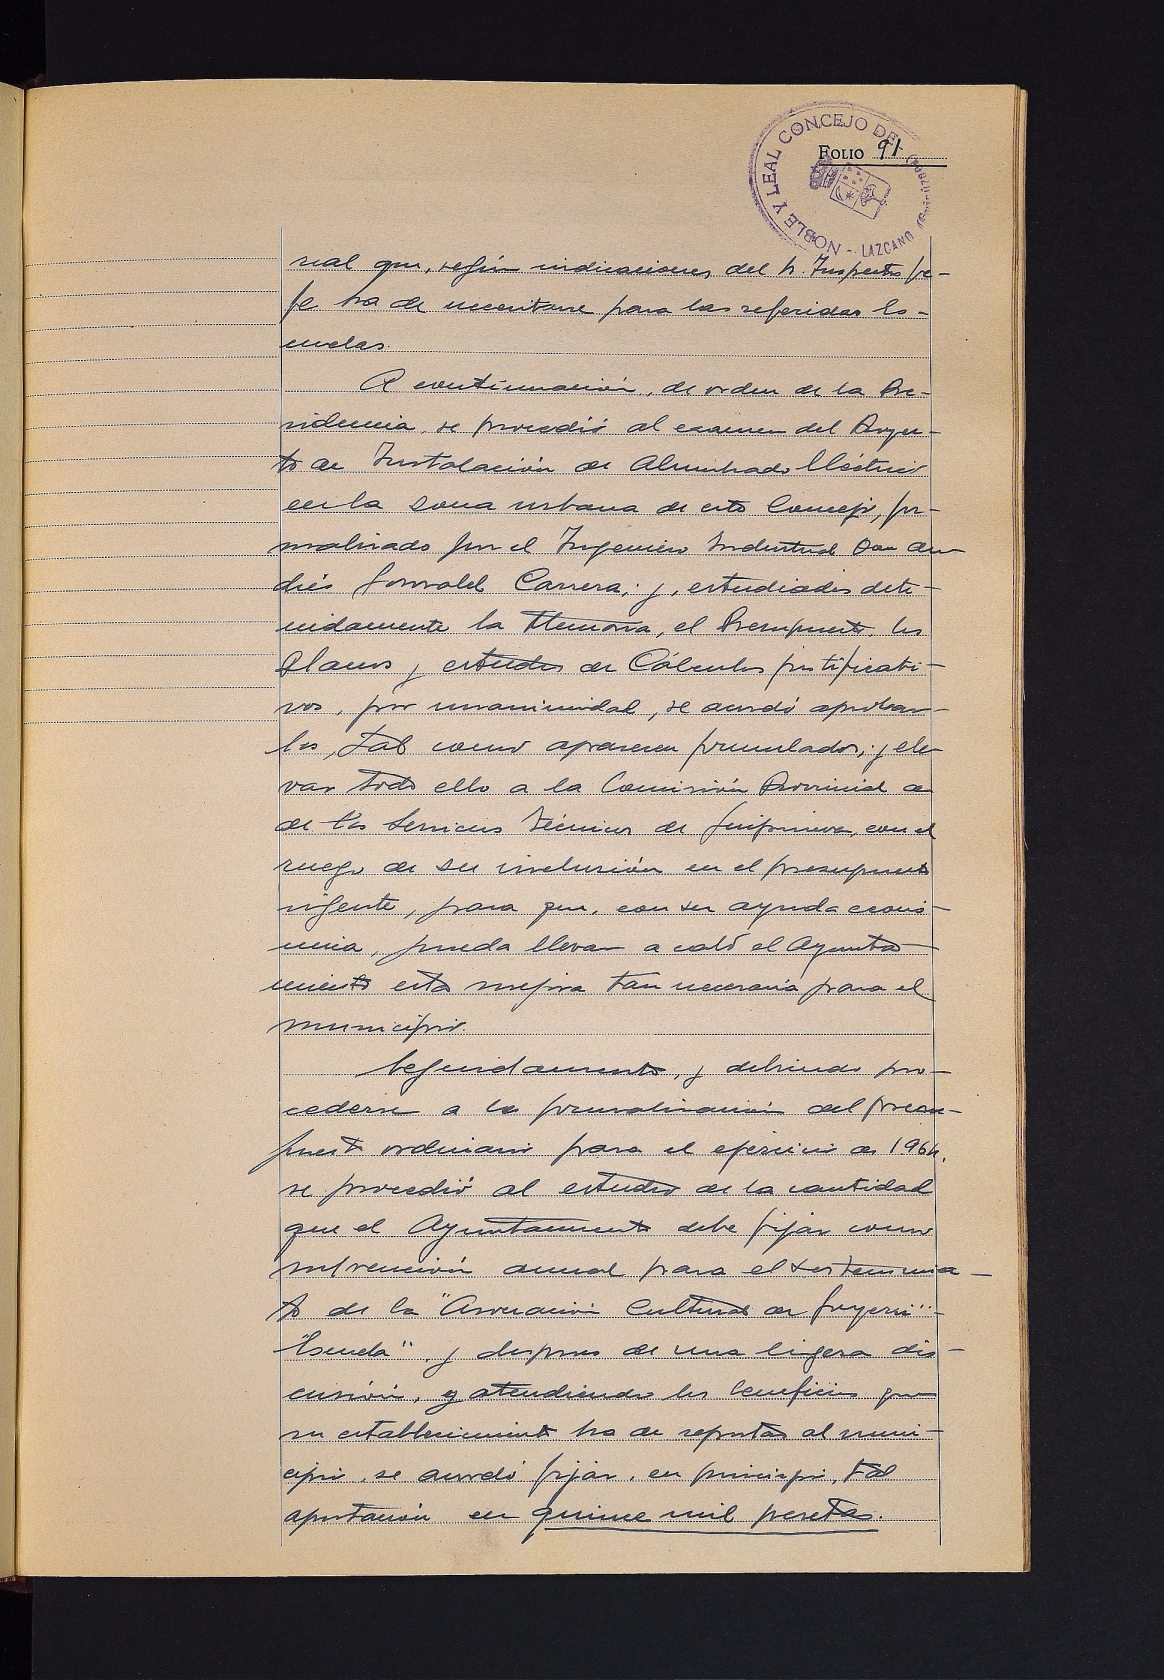 NOBLE Y LEAL CONCEJO DE - LAZCANO (GUIPUZCOA)
FOLIO 91
rial que, según indicaciones del Sr. Inspector Je-
fe ha de necesitarse para las referidas Es-
cuelas.
A continuación, de orden de la Pre-
sidencia, se procedió al examen del Proyec-
to de Instalación de Alumbrado Eléctrico
en la zona urbana de este Concejo, for-
malizado por el Ingeniero Industrial Don An-
drés Carrera; y, estudiados dete-
nidamente la Memoria, el Presupuesto, los
Planos y estudios de Cálculos justificati-
vos, por unanimidad, se acordó aprobar-
los, tal como aparecen formulados; y ele-
var todo ello a la Comisión Provincial de
de los Servicios Técnicos de Guipúzcoa, con el
ruego de su inclusión en el presupuesto
vigente, para que, con su ayuda econó-
mica, pueda llevar a cabo el Ayunta-
miento esta mejora tan necesaria para el
municipio.
Seguidamente, y debiendo pro-
cederse a la formalización del presu-
puesto ordinario para el ejercicio de 1964,
se procedió al estudio de la cantidad
que el Ayuntamiento debe fijar como
subvención anual para el sostenimien-
to de la "Asociación Cultural de Goyerri"-
"Escuela", y después de una ligera dis-
cusión, y atendiendo los beneficios que
su establecimiento ha de reportar al muni-
cipio, se acordó fijar, en principio, tal
aportación en quince mil pesetas.